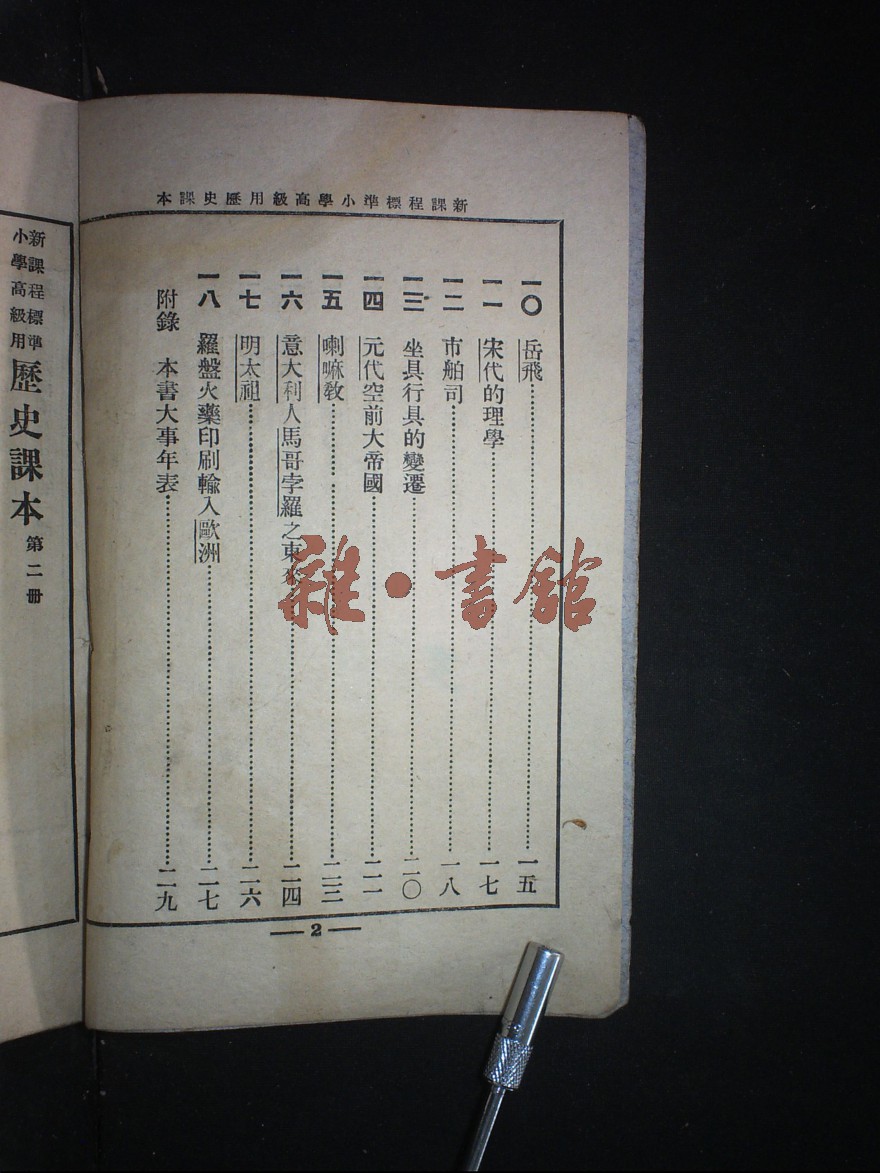 新課程標準小學高級用歷史課本
一〇 岳飛 一五
一一 宋代的理學 一七
一二 市舶司 一八
一三 坐具行具的變遷 二〇
一四 元代空前大帝國 二一
一五 喇嘛教 二三
一六 意大利人馬哥孛羅之東來 二四
一七 明太祖 二六
一八 羅盤火藥印刷輸入歐洲 二七
附錄 本書大事年表 二九
— 2 —
新課程標準
小學高級用
歷史課本 第二冊
雜·書館